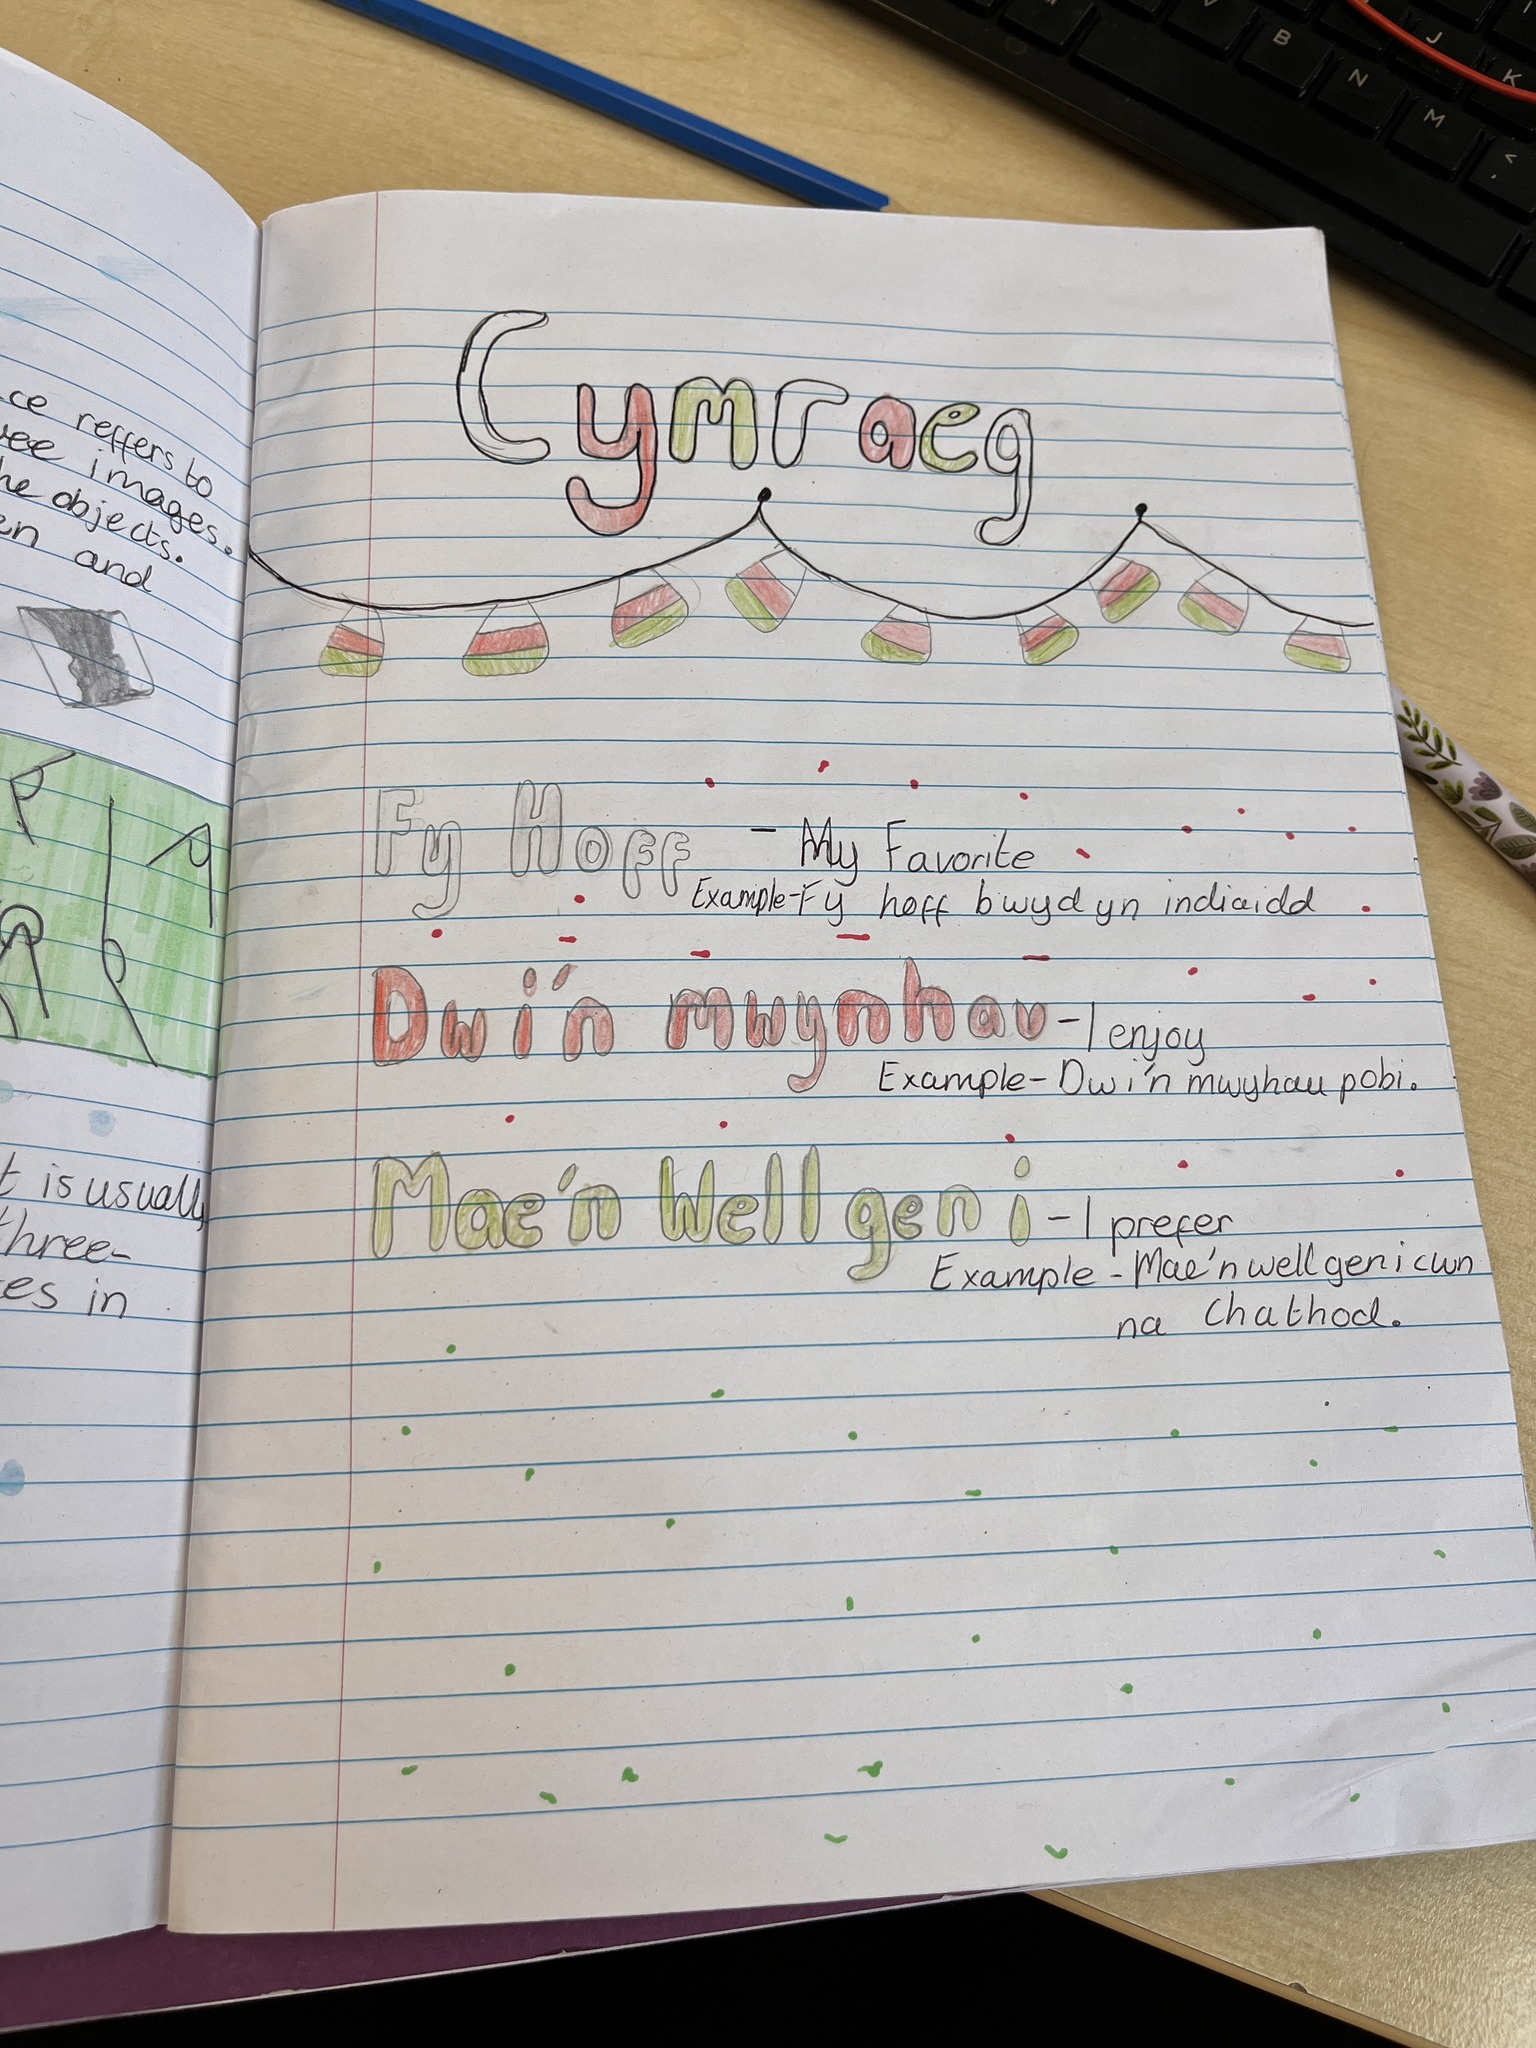 ce reffers to
ee images.
he objects.
en and
t is usually
three-
es in
Cymraeg
Fy Hoff - My Favorite
Example-Fy hoff bwyd yn indiaidd
Dwi'n mwynhau - I enjoy
Example - Dwi'n mwyhau pobi.
Mae'n Well gen i - I prefer
Example - Mae'n well gen i cwn
na Chathod.
B
N
M
J
K
V
<